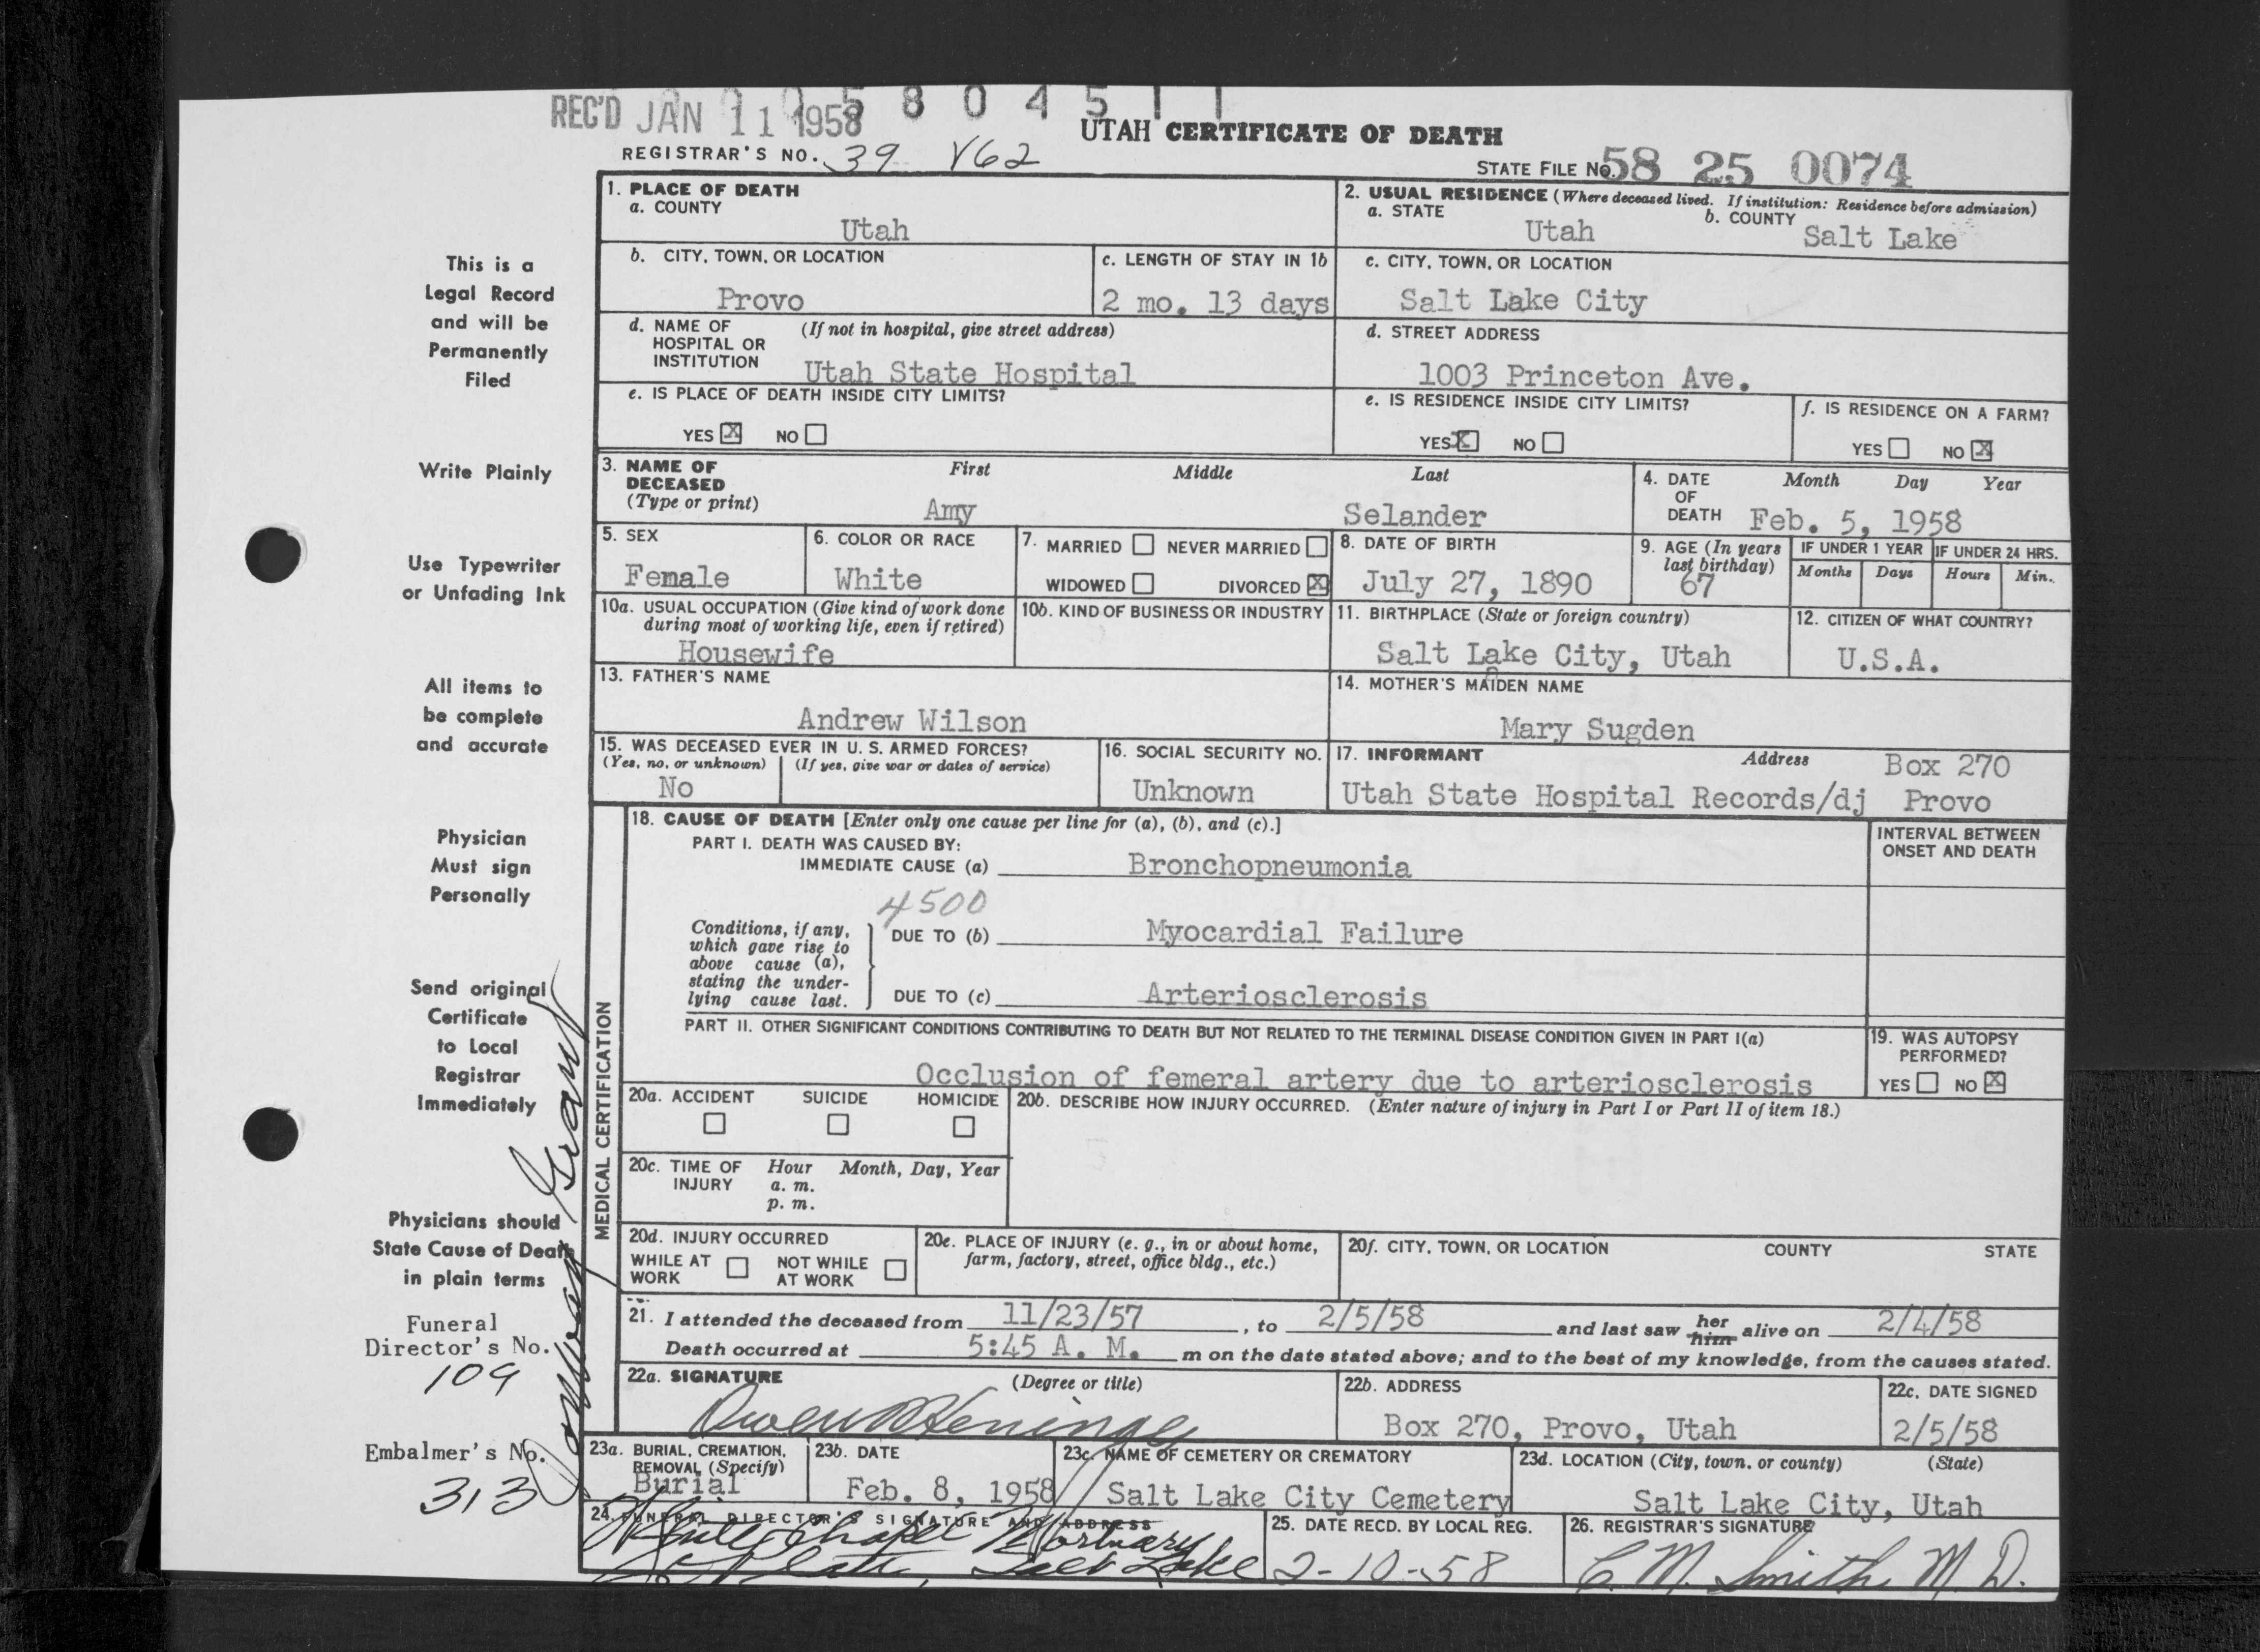 REC'D JAN 11 1958
5 8 0 4 5 1 1
UTAH CERTIFICATE OF DEATH
REGISTRAR'S NO. 39 V62
STATE FILE No. 58 25 0074
This is a
Legal Record
and will be
Permanently
Filed
Write Plainly
Use Typewriter
or Unfading Ink
All items to
be complete
and accurate
Physician
Must sign
Personally
Send original
Certificate
to Local
Registrar
Immediately
Physicians should
State Cause of Death
in plain terms
Funeral
Director's No.
109
Embalmer's No.
313
Grant
1. PLACE OF DEATH
a. COUNTY
Utah
2. USUAL RESIDENCE (Where deceased lived. If institution: Residence before admission)
a. STATE
Utah
b. COUNTY
Salt Lake
b. CITY, TOWN, OR LOCATION
Provo
c. LENGTH OF STAY IN 1b
2 mo. 13 days
c. CITY, TOWN, OR LOCATION
Salt Lake City
d. NAME OF (If not in hospital, give street address)
HOSPITAL OR
INSTITUTION Utah State Hospital
d. STREET ADDRESS
1003 Princeton Ave.
e. IS PLACE OF DEATH INSIDE CITY LIMITS?
YES X NO
e. IS RESIDENCE INSIDE CITY LIMITS?
YES X NO
f. IS RESIDENCE ON A FARM?
YES NO X
3. NAME OF First Middle Last
DECEASED
(Type or print) Amy Selander
4. DATE Month Day Year
OF
DEATH Feb. 5, 1958
5. SEX
Female
6. COLOR OR RACE
White
7. MARRIED NEVER MARRIED
WIDOWED DIVORCED X
8. DATE OF BIRTH
July 27, 1890
9. AGE (In years
last birthday)
67
IF UNDER 1 YEAR
Months Days
IF UNDER 24 HRS.
Hours Min.
10a. USUAL OCCUPATION (Give kind of work done
during most of working life, even if retired)
Housewife
10b. KIND OF BUSINESS OR INDUSTRY
11. BIRTHPLACE (State or foreign country)
Salt Lake City, Utah
12. CITIZEN OF WHAT COUNTRY?
U.S.A.
13. FATHER'S NAME
Andrew Wilson
14. MOTHER'S MAIDEN NAME
Mary Sugden
15. WAS DECEASED EVER IN U. S. ARMED FORCES?
(Yes, no, or unknown) (If yes, give war or dates of service)
No
16. SOCIAL SECURITY NO.
Unknown
17. INFORMANT Address Box 270
Utah State Hospital Records/dj Provo
MEDICAL CERTIFICATION
18. CAUSE OF DEATH [Enter only one cause per line for (a), (b), and (c).]
INTERVAL BETWEEN
ONSET AND DEATH
PART I. DEATH WAS CAUSED BY:
IMMEDIATE CAUSE (a) Bronchopneumonia
4500
Conditions, if any,
which gave rise to
above cause (a),
stating the under-
lying cause last.
DUE TO (b) Myocardial Failure
DUE TO (c) Arteriosclerosis
PART II. OTHER SIGNIFICANT CONDITIONS CONTRIBUTING TO DEATH BUT NOT RELATED TO THE TERMINAL DISEASE CONDITION GIVEN IN PART I(a)
Occlusion of femeral artery due to arteriosclerosis
19. WAS AUTOPSY
PERFORMED?
YES NO X
20a. ACCIDENT SUICIDE HOMICIDE
20b. DESCRIBE HOW INJURY OCCURRED. (Enter nature of injury in Part I or Part II of item 18.)
20c. TIME OF Hour Month, Day, Year
INJURY a. m.
p. m.
20d. INJURY OCCURRED
WHILE AT NOT WHILE
WORK AT WORK
20e. PLACE OF INJURY (e. g., in or about home,
farm, factory, street, office bldg., etc.)
20f. CITY, TOWN, OR LOCATION COUNTY STATE
21. I attended the deceased from 11/23/57, to 2/5/58 and last saw her him alive on 2/4/58
Death occurred at 5:45 A. M. m on the date stated above; and to the best of my knowledge, from the causes stated.
22a. SIGNATURE (Degree or title)
Owen P Heninger
22b. ADDRESS
Box 270, Provo, Utah
22c. DATE SIGNED
2/5/58
23a. BURIAL, CREMATION,
REMOVAL (Specify)
Burial
23b. DATE
Feb. 8, 1958
23c. NAME OF CEMETERY OR CREMATORY
Salt Lake City Cemetery
23d. LOCATION (City, town, or county) (State)
Salt Lake City, Utah
24. FUNERAL DIRECTOR'S SIGNATURE AND ADDRESS
Mortuary
Salt Lake
25. DATE RECD. BY LOCAL REG.
2-10-58
26. REGISTRAR'S SIGNATURE
C. M. Smith, M. D.